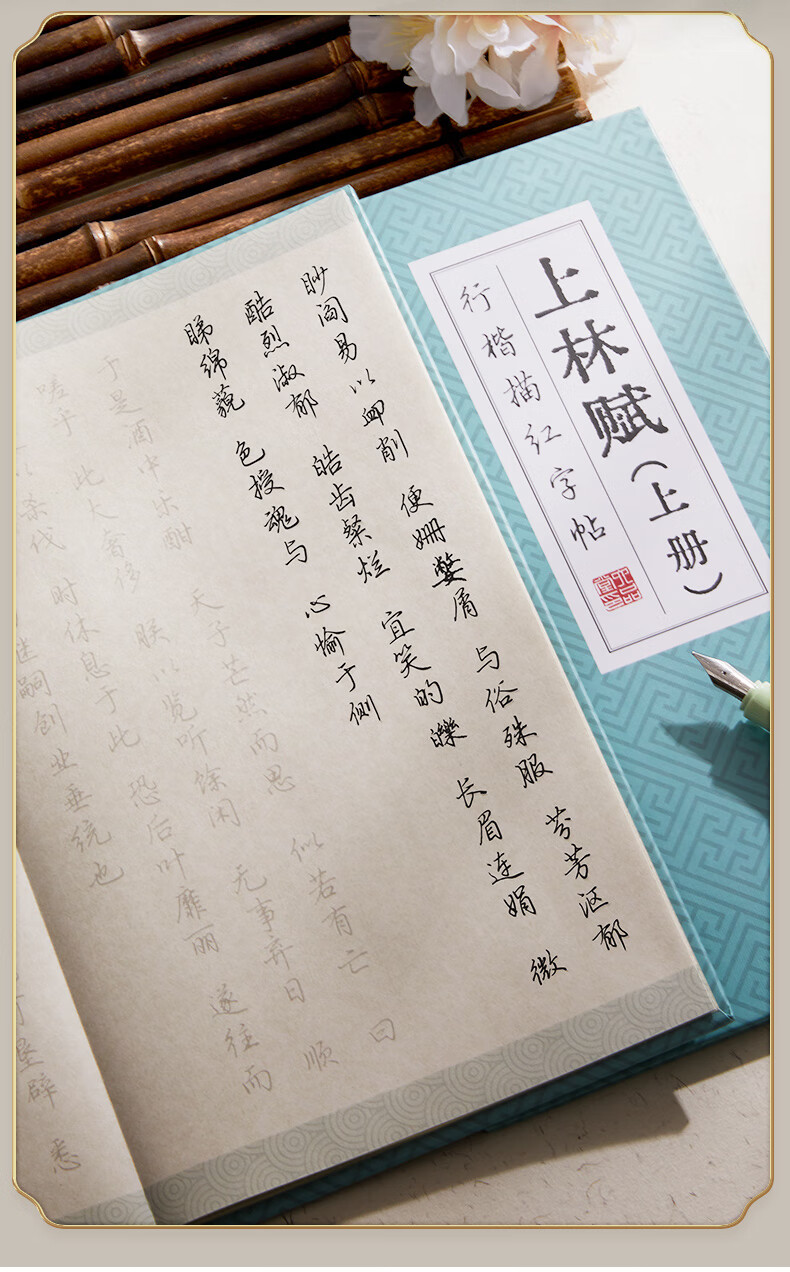 上林赋(上册)
行楷描红字帖
眇阎易以卹削 便姗嫳屑 与俗殊服 芬芳沤郁
酷烈淑郁 皓齿粲烂 宜笑的皪 长眉连娟 微
睇绵藐 色授魂与 心愉于侧
于是酒中乐酣 天子芒然而思 似若有亡 曰
嗟乎 此大奢侈 朕以览听馀闲 无事弃日 顺
以杀伐 时休息于此 恐后叶靡丽 遂往而
继嗣创业垂统也
垦辟 悉